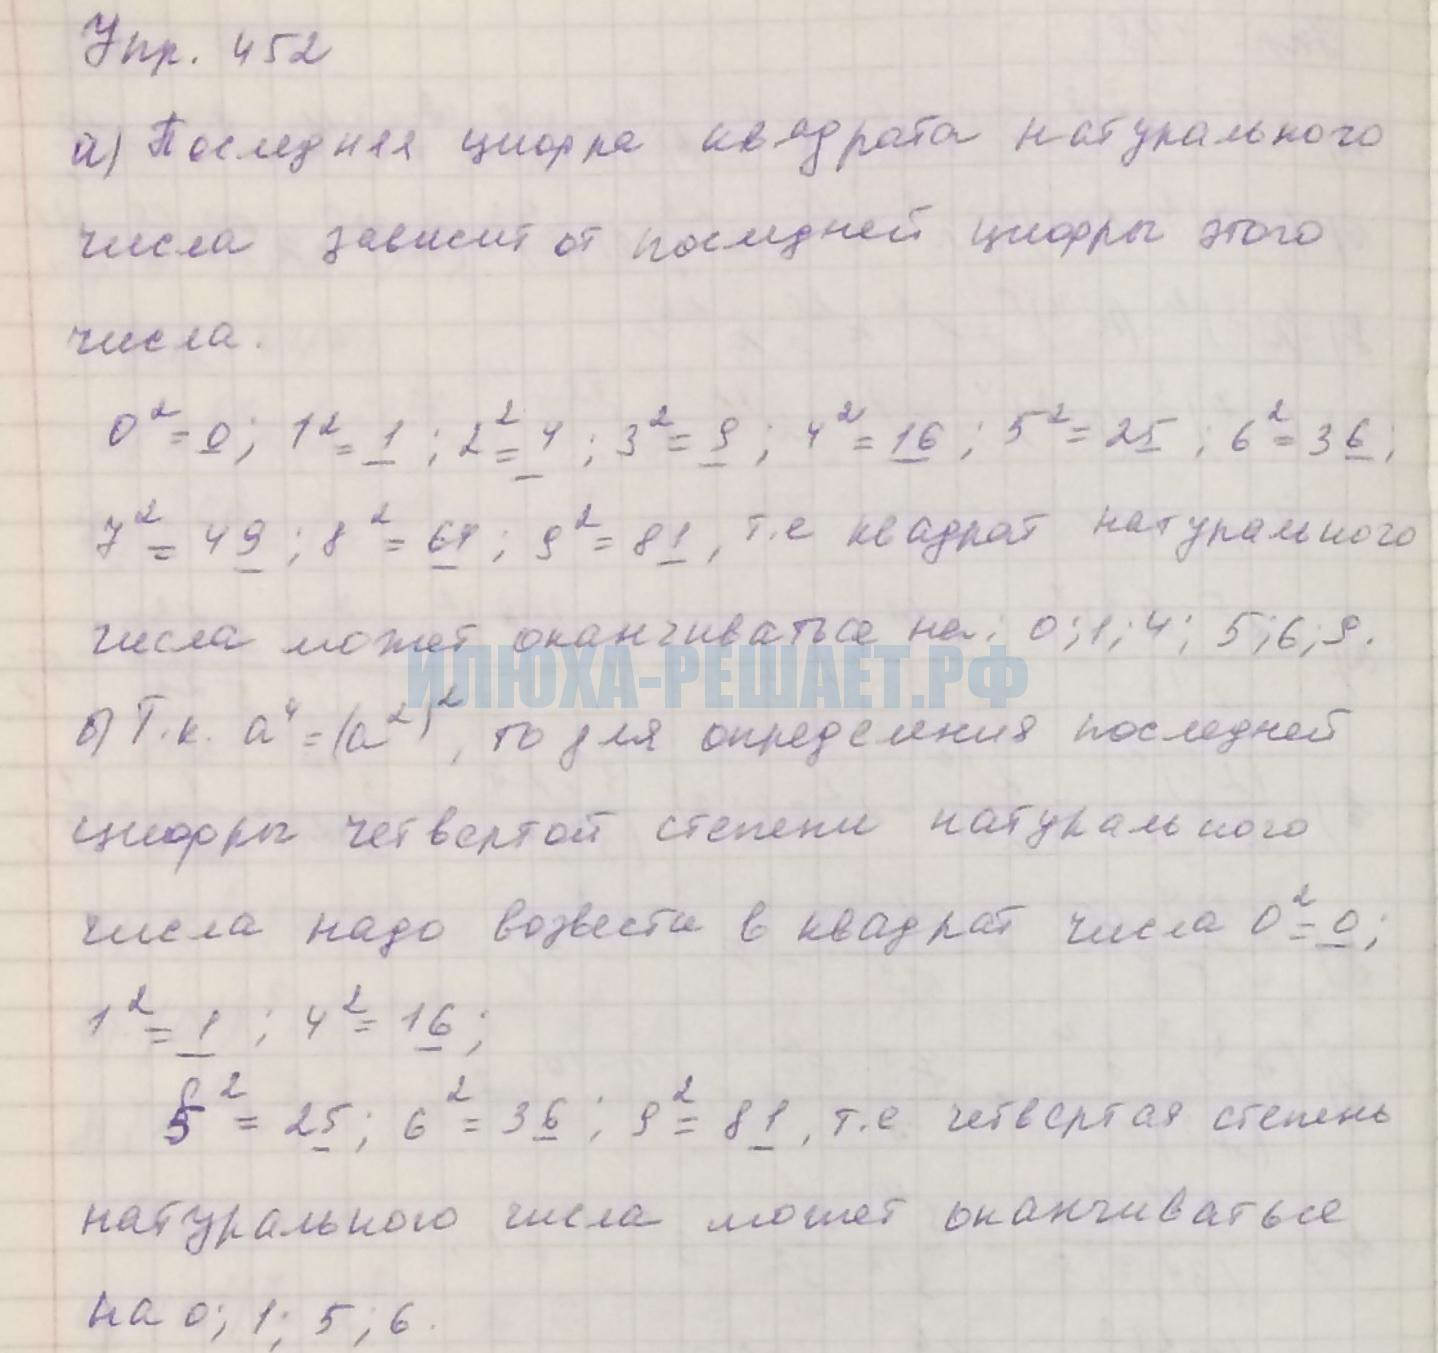 Упр. 452
а) Последняя цифра квадрата натурального
числа зависит от последней цифры этого
числа.
0² = 0; 1² = 1; 2² = 4; 3² = 9; 4² = 16; 5² = 25; 6² = 36;
7² = 49; 8² = 64; 9² = 81, т.е квадрат натурального
числа может оканчиваться на: 0; 1; 4; 5; 6; 9.
ИЛЮХА-РЕШАЕТ.РФ
б) Т.к. a⁴ = (a²)², то для определения последней
цифры четвертой степени натурального
числа надо возвести в квадрат числа 0² = 0;
1² = 1; 4² = 16;
5² = 25; 6² = 36; 9² = 81, т.е четвертая степень
натурального числа может оканчиваться
на 0; 1; 5; 6.